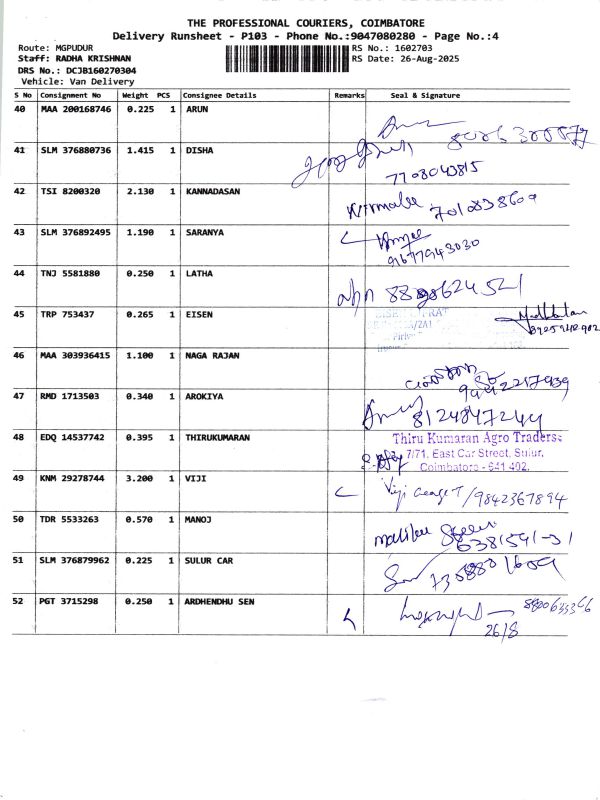 THE PROFESSIONAL COURIERS, COIMBATORE
Delivery Runsheet - P103 - Phone No.:9047080280 - Page No.:4
Route: MGPUDUR
RS No.: 1602703
Staff: RADHA KRISHNAN
RS Date: 26-Aug-2025
DRS No.: DCJB160270304
Vehicle: Van Delivery
S No Consignment No Weight PCS Consignee Details Remarks Seal & Signature
40 MAA 200168746 0.225 1 ARUN
41 SLM 376880736 1.415 1 DISHA
7708043815
42 TSI 8200320 2.130 1 KANNADASAN
7010838609
43 SLM 376892495 1.190 1 SARANYA
9677943030
44 TNJ 5581880 0.250 1 LATHA
45 TRP 753437 0.265 1 EISEN
46 MAA 303936415 1.100 1 NAGA RAJAN
47 RMD 1713503 0.340 1 AROKIYA
8124847244
48 EDQ 14537742 0.395 1 THIRUKUMARAN
Thiru Kumaran Agro Traders
7/71, East Car Street, Sulur,
Coimbatore - 641 402.
49 KNM 29278744 3.200 1 VIJI
Viji /9842367894
50 TDR 5533263 0.570 1 MANOJ
51 SLM 376879962 0.225 1 SULUR CAR
52 PGT 3715298 0.250 1 ARDHENDHU SEN
26/8